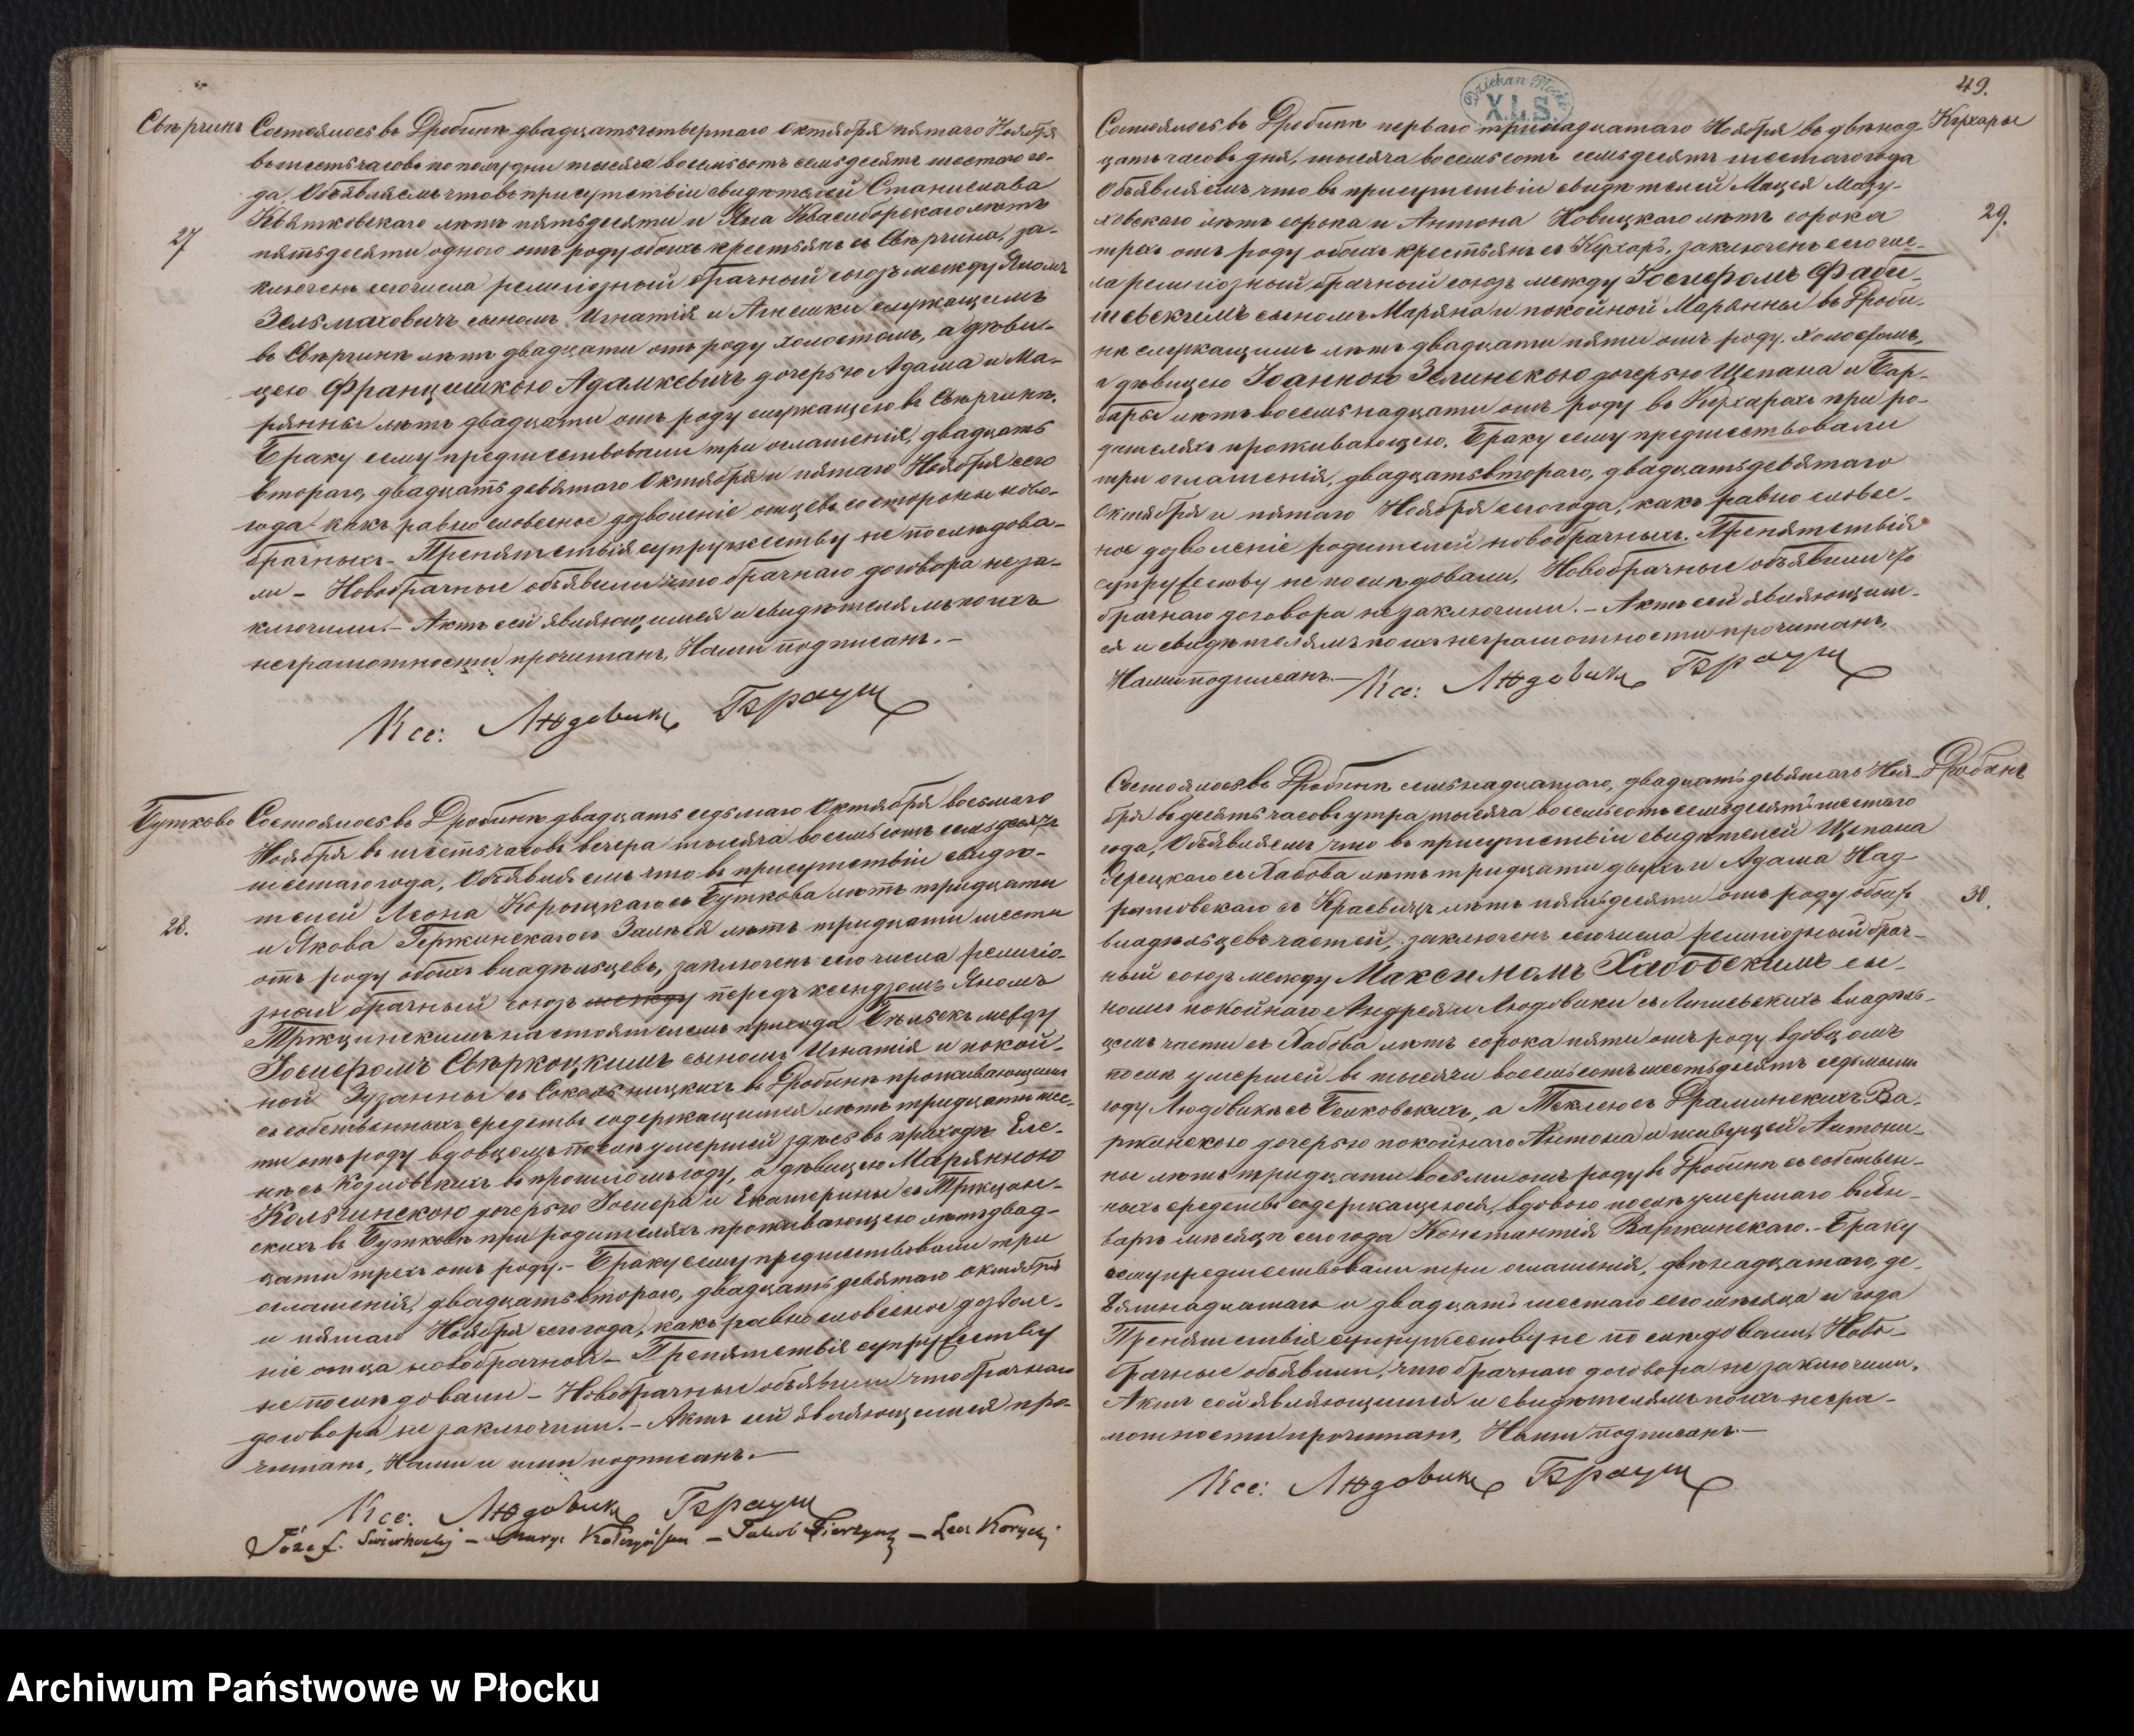 Свѣрчинъ
27
Состоялось въ Дробинѣ двадцать четвертаго Октября пятаго Ноября
въ шесть часовъ по полудни тысяча восемьсотъ семьдесятъ шестаго го-
да. Объявляемъ что въ присутствіи свидѣтелей Станислава
Квятковскаго лѣтъ пятьдесяти и Яна Квасиборскаго лѣтъ
пятьдесяти одного отъ роду обоихъ крестьянъ съ Свѣрчина, за-
ключенъ сего числа религіозный брачный союзъ между Яномъ
Зельмаховичъ сыномъ Игнатія и Агнешки служащимъ
въ Свѣрчинѣ лѣтъ двадцати отъ роду холостомъ, а дѣви-
цею Францишкою Адамкевичъ дочерью Адама и Ма-
рянны лѣтъ двадцати отъ роду служащею въ Свѣрчинѣ.
Браку сему предшествовали три оглашенія, двадцать
втораго, двадцать девятаго Октября и пятаго Ноября сего
года какъ равно словесное дозволеніе отцевъ со стороны ново-
брачныхъ – Препятствія супружеству не послѣдова-
ли – Новобрачные объявили что брачнаго договора не за-
ключили. – Актъ сей являющимся и свидѣтелямъ по ихъ
неграмотности прочитанъ, Нами подписанъ. –
Ксе: Людовикъ Браунъ
Бутково
28.
Состоялось въ Дробинѣ двадцать седьмаго Октября восьмаго
Ноября въ шесть часовъ вечера тысяча восемьсотъ семьдесятъ
шестаго года, Объявляемъ что въ присутствіи свидѣ-
телей Леона Корыцкаго съ Буткова лѣтъ тридцати
и Якова Гержинскаго съ лѣтъ тридцати шести
отъ роду обоихъ владѣльцевъ, заключенъ сего числа религіо-
зный брачный союзъ между передъ ксендзомъ Яномъ
Тржцинскимъ настоятелемъ прихода Бѣльскъ между
Іосифомъ Свѣркоцкимъ сыномъ Игнатія и покой-
ной Зузанны съ Сокольницкихъ въ Дробинѣ проживающимъ
съ собственныхъ средствъ содержащимся лѣтъ тридцати ше-
сти отъ роду вдовцомъ послѣ умершей здѣсь въ приходѣ Еле-
ны съ Козловскихъ въ прошломъ году, а дѣвицею Марянною
Кольчинскою дочерью Іосифа и Екатерины съ Тржцин-
скихъ въ Бутковѣ при родителяхъ проживающею лѣтъ двад-
цати трехъ отъ роду. – Браку сему предшествовали три
оглашенія, двадцать втораго, двадцать девятаго октября
и пятаго Ноября сего года, какъ равно словесное дозволе-
ніе отца новобрачной – Препятствія супружеству
не послѣдовали – Новобрачные объявили что брачнаго
договора не заключили. – Актъ сей являющимся про-
читанъ, Нами и ими подписанъ. –
Ксе: Людовикъ Браунъ
Józef Świerkocki – – Jakub – Leon Korycki
49.
Dziekan Płocki
X.L.S.
Кухары
29.
Состоялось въ Дробинѣ перваго тринадцатаго Ноября въ двѣнад-
цать часовъ дня, тысяча восемьсотъ семьдесятъ шестаго года
Объявляемъ что въ присутствіи свидѣтелей Мацея Мазу-
ровскаго лѣтъ сорока и Антона Новицкаго лѣтъ сорока
трехъ отъ роду обоихъ крестьянъ съ Кухаръ, заключенъ сего чис-
ла религіозный брачный союзъ между Іосифомъ Фаби-
шевскимъ сыномъ Маряна и покойной Марянны въ Дроби-
нѣ служащимъ лѣтъ двадцати пяти отъ роду. холостомъ,
а дѣвицею Іоанною Зелинскою дочерью Щепана и Бар-
бары лѣтъ восемьнадцати отъ роду въ Кухарахъ при ро-
дителяхъ проживающею. Браку сему предшествовали
три оглашенія, двадцать втораго, двадцать девятаго
Октября и пятаго Ноября сего года, какъ равно словес-
ное дозволеніе родителей новобрачныхъ. Препятствія
супружеству не послѣдовали, Новобрачные объявили что
брачнаго договора не заключили. – Актъ сей являющим-
ся и свидѣтелямъ по ихъ неграмотности прочитанъ,
Нами подписанъ. –
Ксе: Людовикъ Браунъ
Дробинъ
30.
Состоялось въ Дробинѣ семьнадцатаго, двадцать девятаго Ноя-
бря въ десять часовъ утра тысяча восемьсотъ семьдесятъ шестаго
года, Объявляемъ что въ присутствіи свидѣтелей Щепана
съ Хабова лѣтъ тридцати двухъ и Адама Над-
ратовскаго съ лѣтъ пятьдесяти отъ роду обоихъ
владѣльцевъ частей, заключенъ сего числа религіозный брач-
ный союзъ между Максимомъ Хабовскимъ сы-
номъ покойнаго Андрея и Людовики съ владѣль-
цемъ части съ Хабова лѣтъ сорока пяти отъ роду вдовцомъ
послѣ умершей въ тысяча восемьсотъ шестьдесятъ седьмомъ
году Людовикѣ съ а Теклею съ Драминскихъ Ва-
ржинскою дочерью покойнаго Антона и живущей Антони-
ны лѣтъ тридцати восьми отъ роду въ Дробинѣ съ собствен-
ныхъ средствъ содержащеюся, вдовою послѣ умершаго въ Ян-
варѣ мѣсяцѣ сего года Константія Варжинскаго. – Браку
сему предшествовали три оглашенія, двѣнадцатаго, де-
вятнадцатаго и двадцать шестаго сего мѣсяца и года
Препятствія супружеству не послѣдовали, Ново-
брачные объявили, что брачнаго договора не заключили.
Актъ сей являющимся и свидѣтелямъ по ихъ негра-
мотности прочитанъ, Нами подписанъ. –
Ксе: Людовикъ Браунъ
Archiwum Państwowe w Płocku